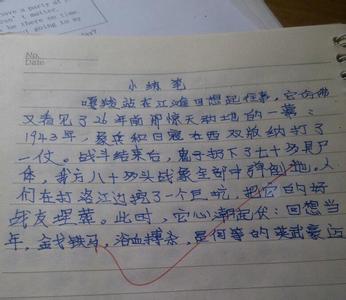 have a party at
don't matter.
be there on time.
going to my
No.
Date
小练笔
嘎羧站在江滩回想起往事,它仿佛
又看见了26年前那惊天动地的一幕:
1943年,象兵和日寇在西双版纳打了
一仗。战斗结束后,鬼子扔下了七十多具尸
体,我方八十多头战象全部中弹倒地,人
们在打洛江边挖了一个巨坑,把它的好
战友埋葬。此时,它心潮起伏:回想当
年,金戈铁马,浴血搏杀,是何等的英武豪迈